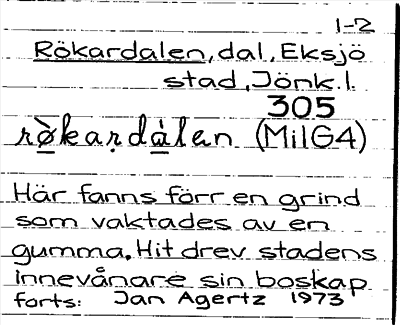 1-2
Rökardalen, dal, Eksjö
stad, Jönk. l.
305
rö̀kaṛdàlen (MilG4)
Här fanns förr en grind
som vaktades av en
gumma. Hit drev stadens
innevånare sin boskap
forts: Jan Agertz 1973